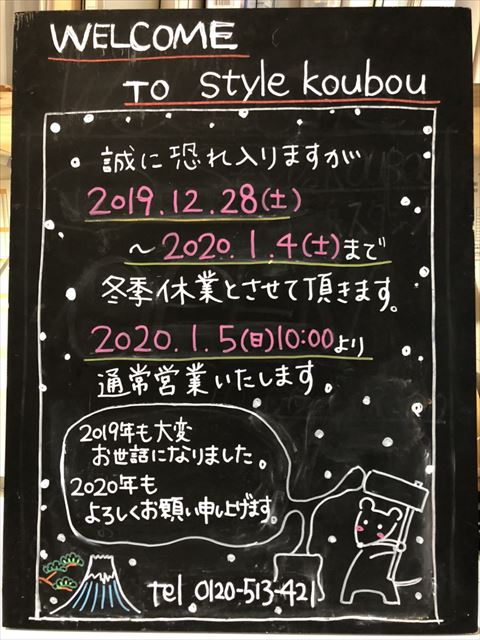 WELCOME
TO style koubou
誠に恐れ入りますが
2019.12.28(土)
~2020.1.4(土)まで
冬季休業とさせて頂きます。
2020.1.5(日)10:00より
通常営業いたします。
2019年も大変
お世話になりました。
2020年も
よろしくお願い申し上げます。
tel 0120-513-421